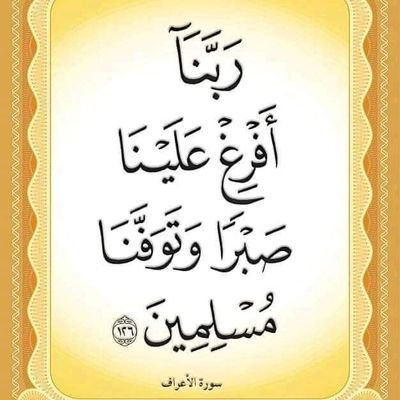 رَبَّنَآ
أَفۡرِغۡ عَلَيۡنَا
صَبۡرٗا وَتَوَفَّنَا
مُسۡلِمِينَ ١٢٦
سورة الأعراف